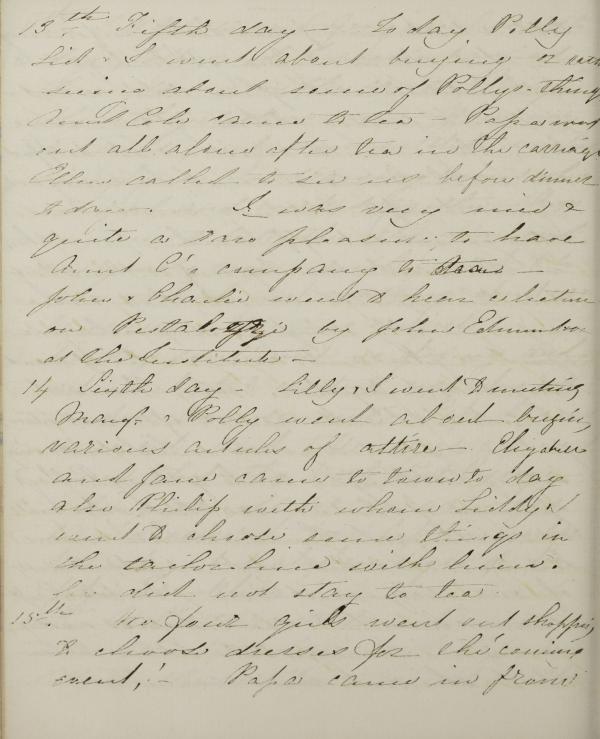 13th Fifth day - To day Polly
Lid & I went about buying or
seeing about some of Pollys things
Aunt Cole came to tea - Papa went
out all alone after tea in the carriage
Ellen called to see us before dinner
to day. It was very nice &
quite a rare pleasure to have
Aunt C's company to
John & Charlie went to hear a lecture
on by John Edmundson
at the Institute -
14 Sixth day - Lilly & I went to meeting
Margt. & Polly went about buying
various articles of attire -
and Jane came to town to day
also Philip with whom Liddy &
went to choose some things in
the tailor line with him.
he did not stay to tea
15th We four girls went out shopping
to choose dresses for the coming
event, ! - Papa came in from